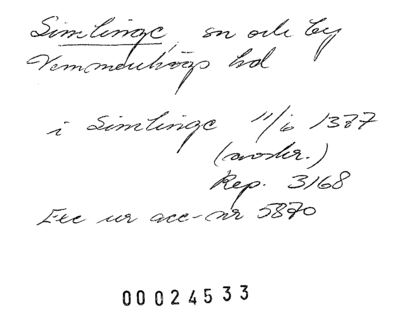 Simlinge, sn och by
Vemmenhögs hd
i Simlinge 11/6 1387
(avskr.)
Rep. 3168
Exc ur acc-nr 5870
00024533